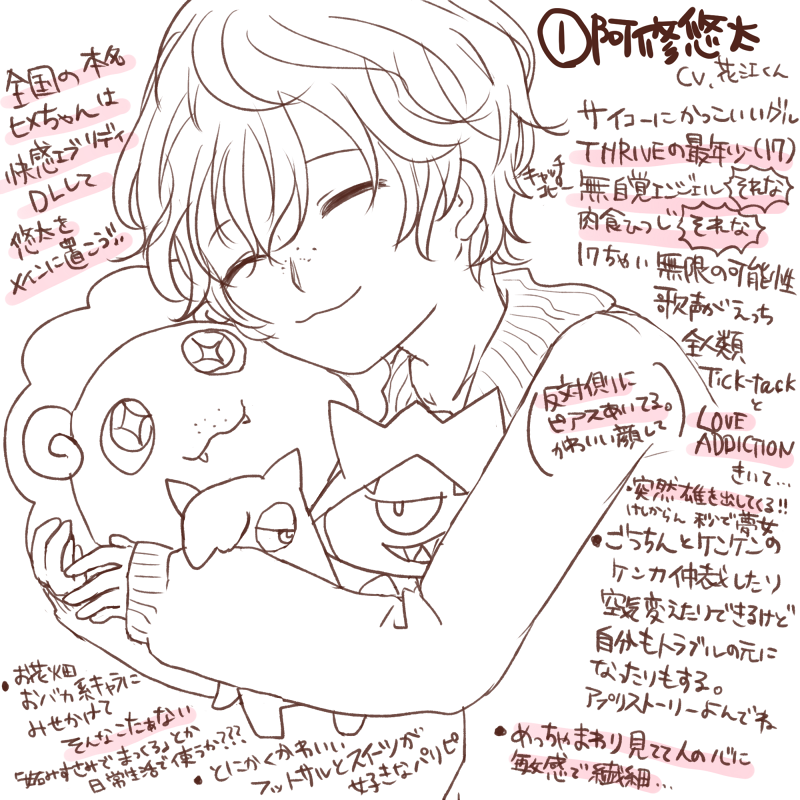 ①阿修悠太
CV.花江くん
全国の本名
ヒメちゃんは
快感エブリディ
DLして
悠太を
メインに置こう!!
サイコーにかっこいいグル
THRIVEの最年少(17)
キャッチ
コピー
無自覚エンジェル それな
肉食ひつじ それな
17ちゃい 無限の可能性
歌声がえっち
全人類
Tick-tack
と
LOVE
ADDICTION
きいて…
反対側に
ピアスあいてる。
かわいい顔して
・突然雄を出してくる!!
けしからん 秒で夢女
・ごうちんとケンケンの
ケンカ仲裁したり
空気変えたりできるけど
自分もトラブルの元に
なったりもする。
アプリストーリーよんでね
・めっちゃまわり見てて人の心に
敏感で繊細…
・お花畑
おバカ系キャラに
みせかけて
そんなこたぁない
日常生活で使うか???
・とにかくかわいい
フットサルとスイーツが
好きなパリピ